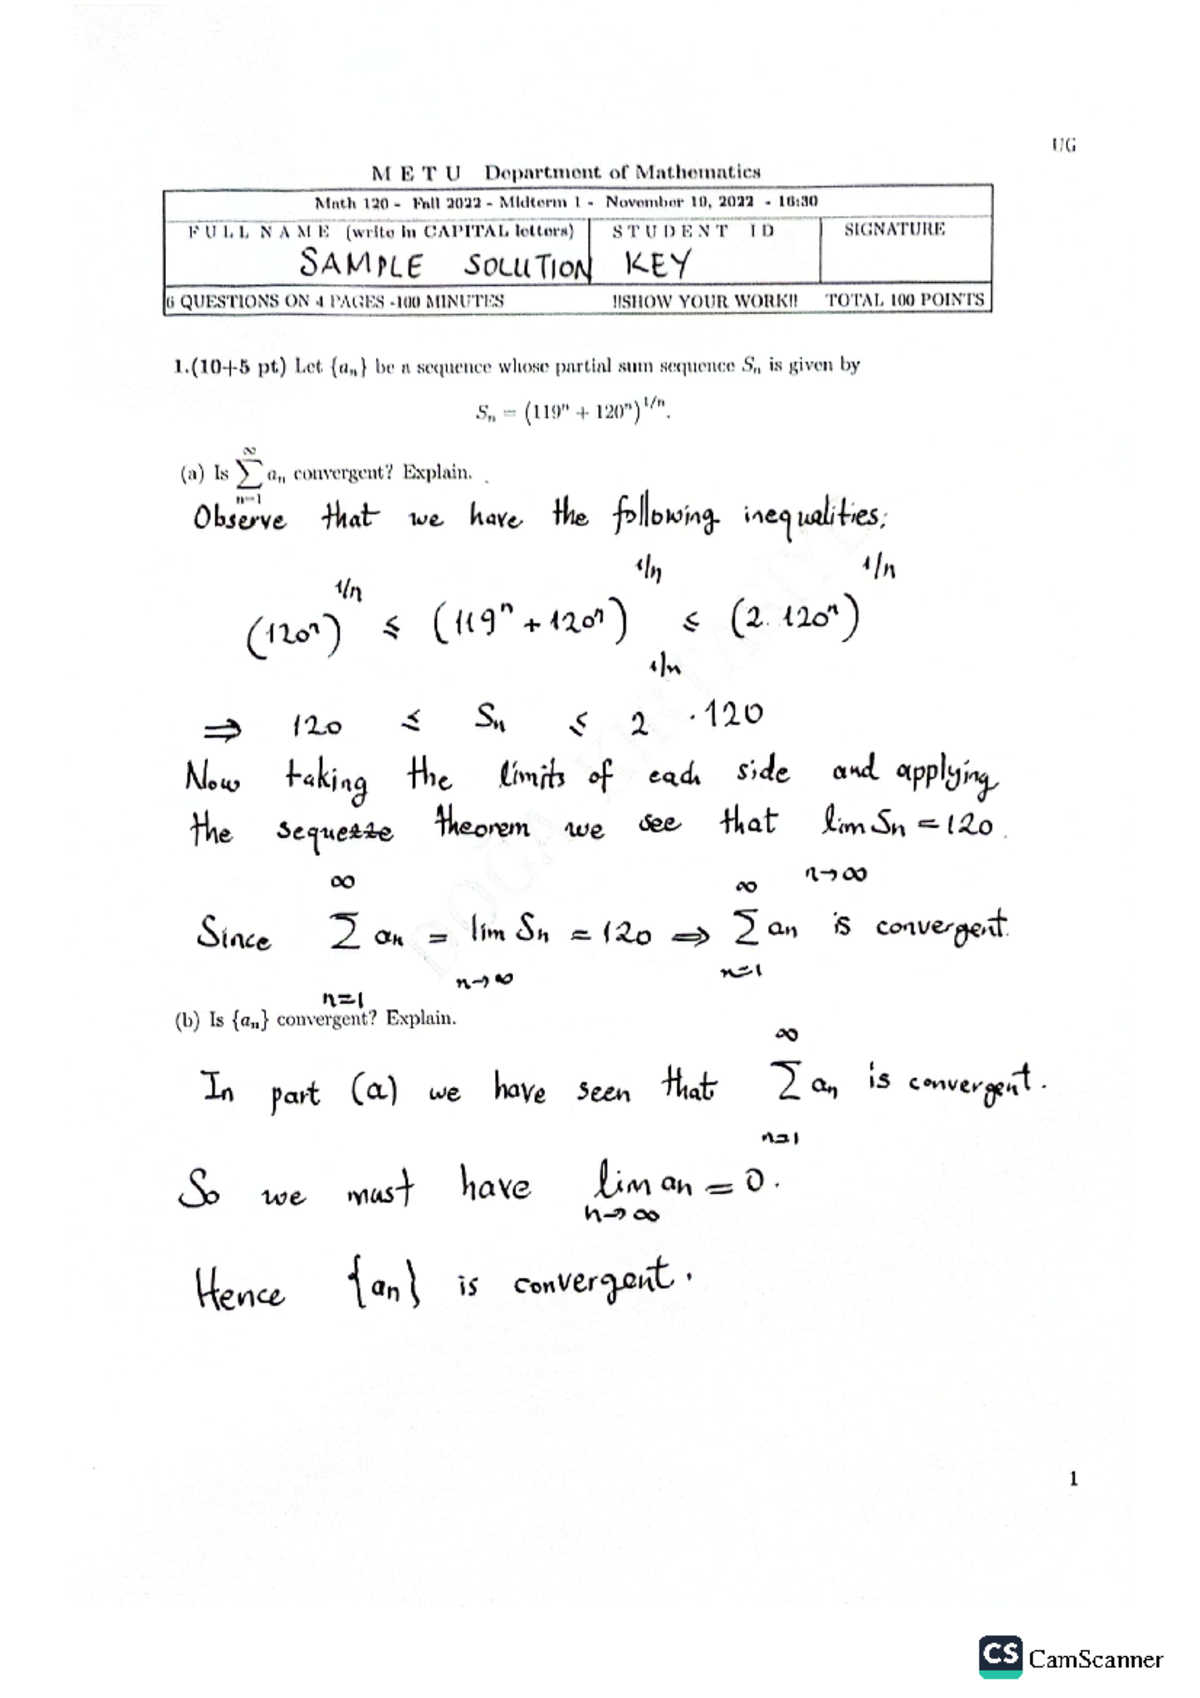 UG
M E T U Department of Mathematics
Math 120 - Fall 2022 - Midterm 1 - November 19, 2022 - 16:30
F U L L N A M E (write in CAPITAL letters) S T U D E N T I D SIGNATURE
SAMPLE SOLUTION KEY
6 QUESTIONS ON 4 PAGES -100 MINUTES !!SHOW YOUR WORK!! TOTAL 100 POINTS
1.(10+5 pt) Let {aₙ} be a sequence whose partial sum sequence Sₙ is given by
Sₙ = (119ⁿ + 120ⁿ)^{1/n}.
(a) Is ∑_{n=1}^{∞} aₙ convergent? Explain.
Observe that we have the following inequalities:
(120ⁿ)^{1/n} ≤ (119ⁿ + 120ⁿ)^{1/n} ≤ (2. 120ⁿ)^{1/n}
⇒ 120 ≤ Sₙ ≤ 2^{1/n} · 120
Now taking the limits of each side and applying
the sequezze theorem we see that lim_{n→∞} Sₙ = 120.
Since ∑_{n=1}^{∞} aₙ = lim_{n→∞} Sₙ = 120 ⇒ ∑_{n=1}^{∞} aₙ is convergent.
(b) Is {aₙ} convergent? Explain.
In part (a) we have seen that ∑_{n=1}^{∞} aₙ is convergent.
So we must have lim_{n→∞} aₙ = 0.
Hence {aₙ} is convergent.
1
CS CamScanner